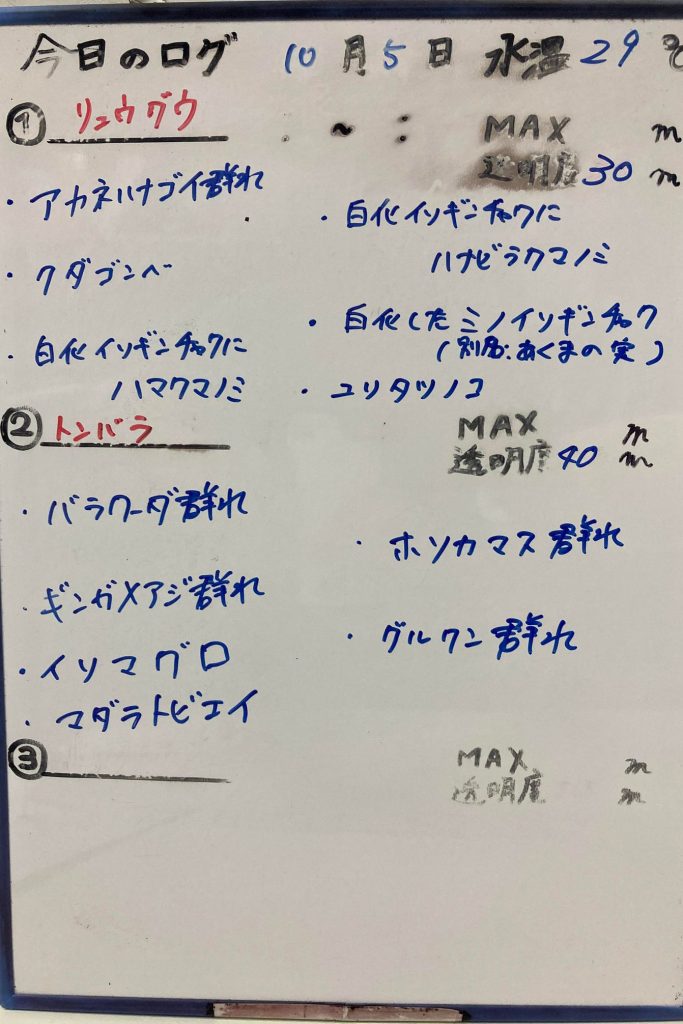 今日のログ 10月5日 水温29℃
① リュウグウ . ~ : MAX m
透明度30m
・アカネハナゴイ群れ
・クダゴンベ
・白化イソギンチャクに
ハマクマノミ
・白化イソギンチャクに
ハナビラクマノミ
・白化したミノイソギンチャク
(別名:あくまの実)
・ユリタツノコ
② トンバラ MAX m
透明度40m
・バラクーダ群れ
・ギンガメアジ群れ
・イソマグロ
・マダラトビエイ
・ホソカマス群れ
・グルクン群れ
③ MAX m
透明度 m